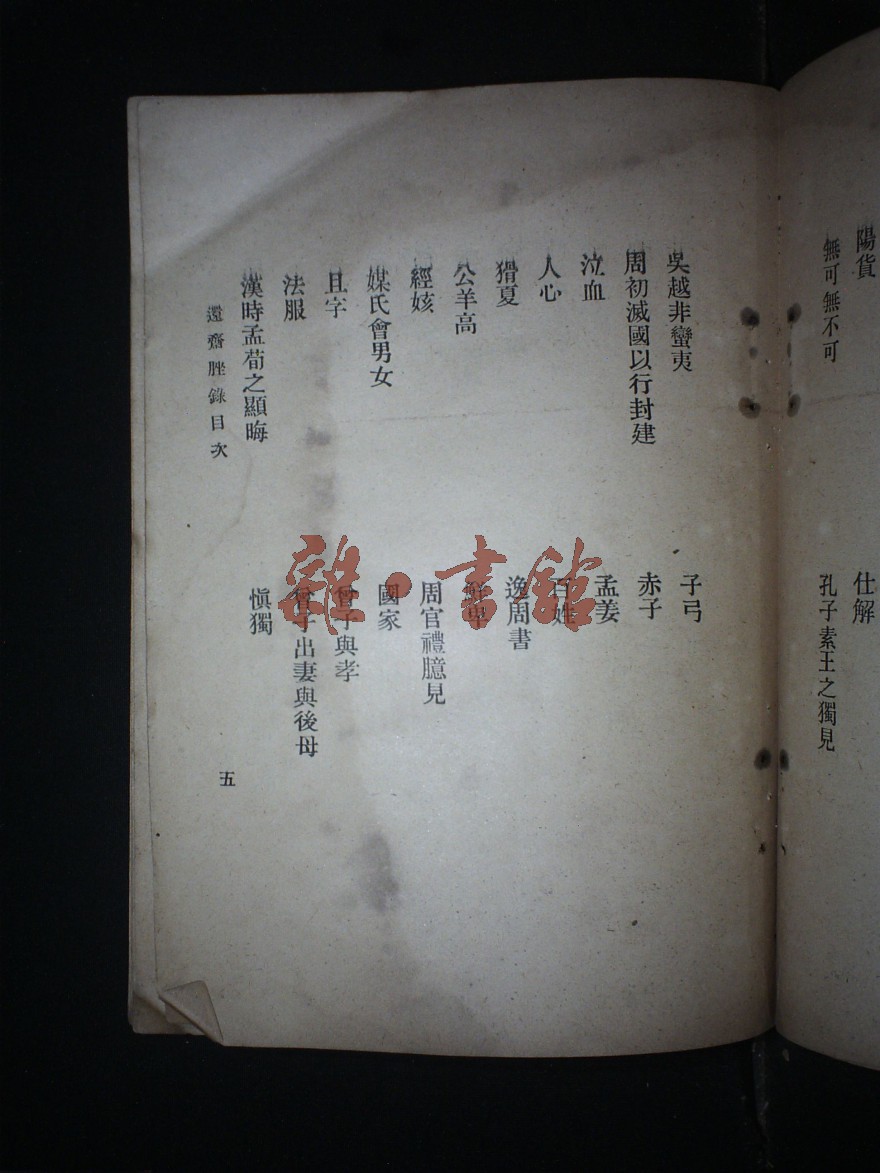 陽貨
仕解
無可無不可
孔子素王之獨見
吳越非蠻夷
子弓
周初滅國以行封建
赤子
泣血
孟姜
人心
百姓
猾夏
逸周書
公羊高
鮮卑
經姟
周官禮臆見
媒氏會男女
國家
且字
曾子與孝
法服
曾子出妻與後母
漢時孟荀之顯晦
慎獨
還齋脞錄目次
五
雜·書館